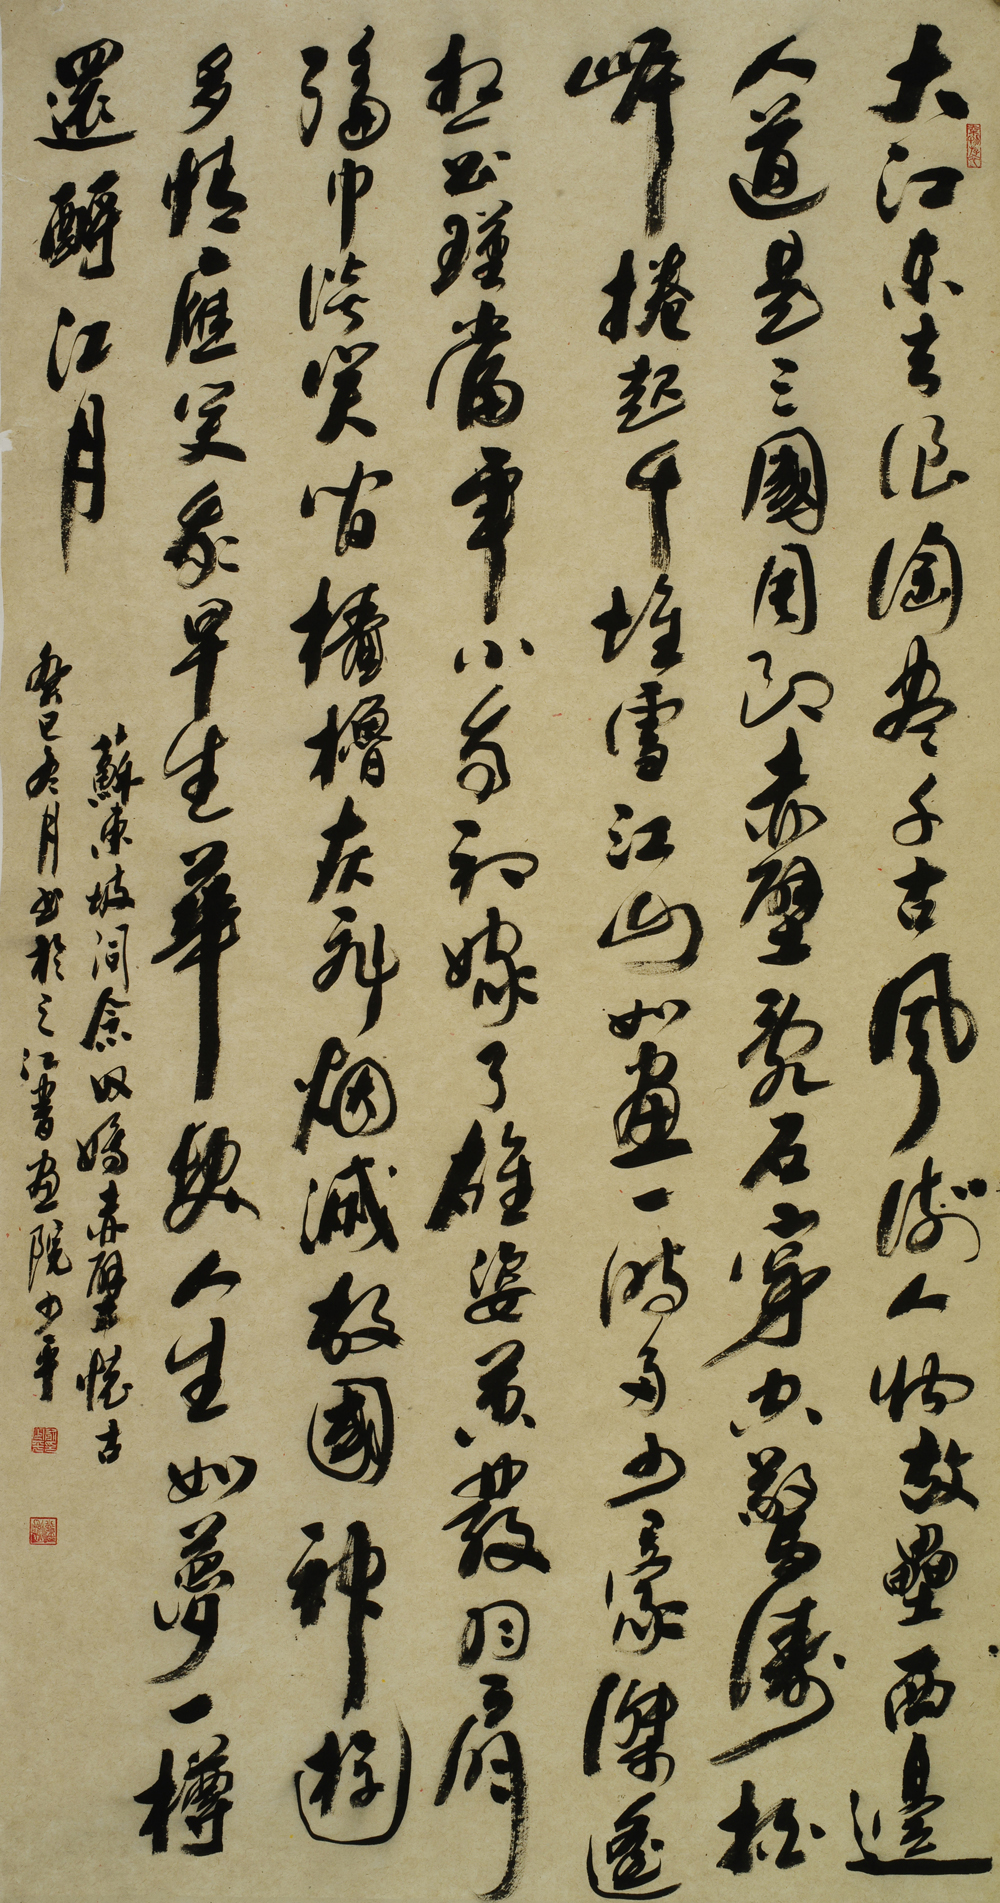 大江東去浪淘盡千古風流人物故壘西邊
人道是三國周郎赤壁亂石穿空驚濤拍
岸捲起千堆雪江山如畫一時多少豪傑遙
想公瑾當年小喬初嫁了雄姿英發羽扇
綸巾談笑間檣櫓灰飛烟滅故國神遊
多情應笑我早生華髮人生如夢一樽
還酹江月
蘇東坡詞念奴嬌赤壁懷古
癸巳冬月書於之江書畫院少平